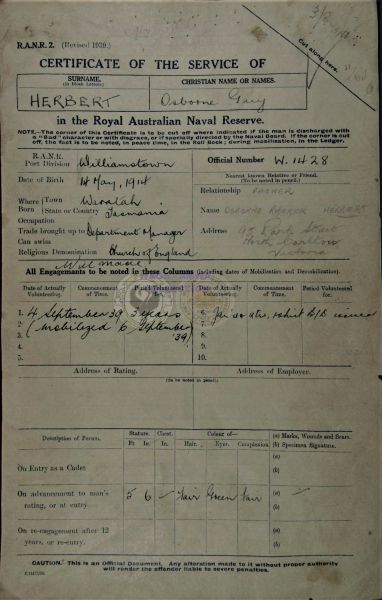 R.A.N.R. 2. (Revised 1939.)
CERTIFICATE OF THE SERVICE OF
Cut along here.
SURNAME.
(In Block Letters)
CHRISTIAN NAME OR NAMES.
HERBERT
Osborne Gary
in the Royal Australian Naval Reserve.
NOTE.—The corner of this Certificate is to be cut off where indicated if the man is discharged with a "Bad" character or with disgrace, or if specially directed by the Naval Board. If the corner is cut off, the fact is to be noted, in peace time, in the Roll; during mobilization, in the Ledger.
R.A.N.R. Port Division Williamstown
Official Number W.1428
Date of Birth 14 May, 1914
Nearest known Relative or Friend.
(To be noted in pencil.)
Relationship FATHER
Where Born Town
State or Country Tasmania
Name HERBERT
Occupation
Trade brought up to Department Manager
Address Street
North Carlton
Victoria
Can swim
Religious Denomination Church of England
All Engagements to be noted in these Columns (including dates of Mobilization and Demobilization).
Date of Actually Volunteering.
Commencement of Time.
Period Volunteered for.
Date of Actually Volunteering.
Commencement of Time.
Period Volunteered for:
1. 4 September 39 3 years
6.
2. (Mobilized 6 September 39)
7.
3.
8.
4.
9.
5.
10.
Address of Rating.
Address of Employer.
(To be noted in pencil.)
Description of Person.
Stature.
Chest.
Colour of—
(a) Marks, Wounds and Scars.
(b) Specimen Signature.
Ft In.
In.
Hair.
Eyes.
Complexion.
On Entry as a Cadet
(a)
(b)
On advancement to man's rating, or at entry
5 6 - Fair Green Fair
(a) -
(b)
On re-engagement after 12 years, or re-entry.
(a)
(b)
CAUTION.—This is an Official Document. Any alteration made to it without proper authority will render the offender liable to severe penalties.